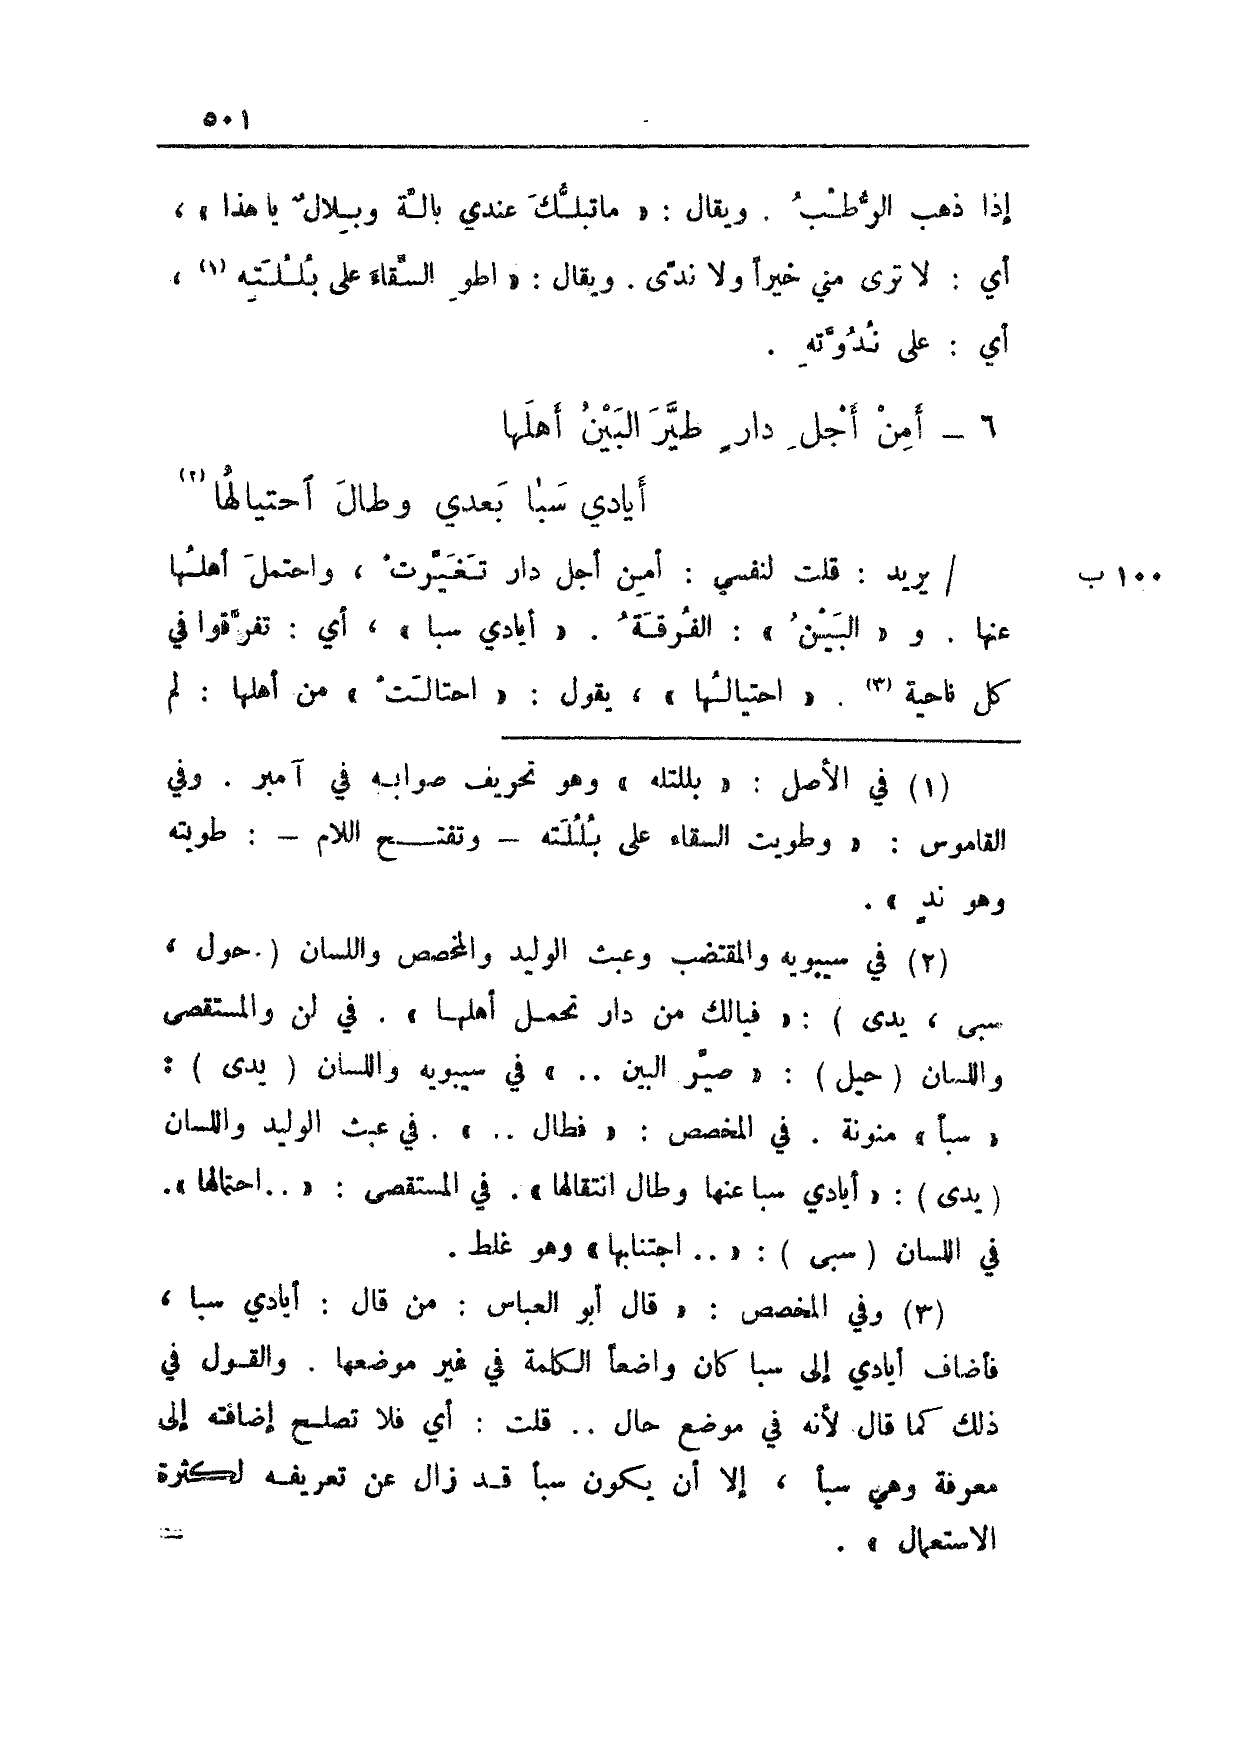 ٥٠١
إذا ذهب الرُّطْبُ . ويقال : « ماتبلُّكَ عندي بالَّة وبِلالٌ ياهذا » ،
أي : لا ترى مني خيراً ولا ندىً . ويقال : « اطوِ السِّقاءَ على بُلُلَتِه (١) ،
أي : على نُدُوَّتهِ .
٦ – أَمِنْ أَجْلِ دارٍ طيَّرَ البَيْنُ أَهلَها
أَيادي سَبَا بَعدي وطالَ ٱحتيالُها (٢)
١٠٠ ب
/ يريد : قلت لنفسي : أمِن أجل دار تَغَيَّرتْ ، واحتملَ أهلُها
عنها . و « البَيْنُ » : الفُرقةُ . « أيادي سبا » ، أي : تفرَّقوا في
كل ناحية (٣) . « احتيالُها » ، يقول : « احتالَتْ » من أهلها : لم
(١) في الأصل : « بللتله » وهو تحريف صوابه في آمبر . وفي
القاموس : « وطويت السقاء على بُلُلَته – وتفتح اللام – : طويته
وهو ندٍ » .
(٢) في سيبويه والمقتضب وعبث الوليد والمخصص واللسان ( حول ،
سبى ، يدى ) : « فيالك من دار تحمل أهلها » . في لن والمستقصى
واللسان ( حيل ) : « صيَّر البين .. » في سيبويه واللسان ( يدى ) :
« سبأ » منونة . في المخصص : « فطال .. » . في عبث الوليد واللسان
( يدى ) : « أيادي سبا عنها وطال انتقالها » . في المستقصى : « .. احتمالها » .
في اللسان ( سبى ) : « .. اجتنابها » وهو غلط .
(٣) وفي المخصص : « قال أبو العباس : من قال : أيادي سبا ،
فأضاف أيادي إلى سبا كان واضعاً الكلمة في غير موضعها . والقول في
ذلك كما قال لأنه في موضع حال .. قلت : أي فلا تصلح إضافته إلى
معرفة وهي سبأ ، إلا أن يكون سبأ قد زال عن تعريفه لكثرة
الاستعمال » .
=